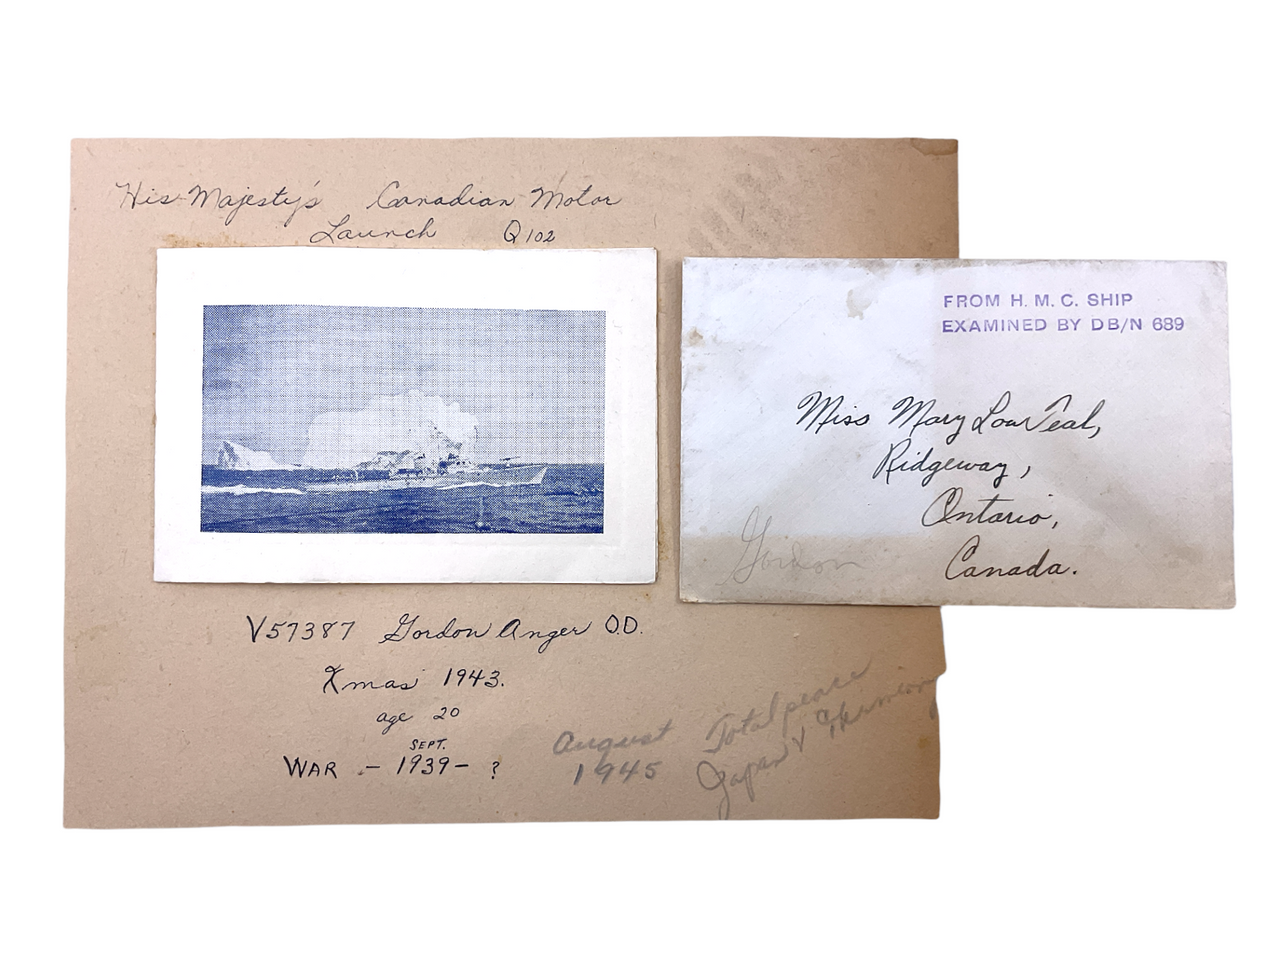 His Majesty's Canadian Motor
Launch Q102
FROM H. M. C. SHIP
EXAMINED BY DB/N 689
Miss Mary Lou Teal,
Ridgeway,
Ontario,
Canada.
Gordon
V57387 Gordon Anger O.D.
Xmas 1943.
age 20
SEPT.
WAR - 1939 - ?
August Total peace
1945 Japan &